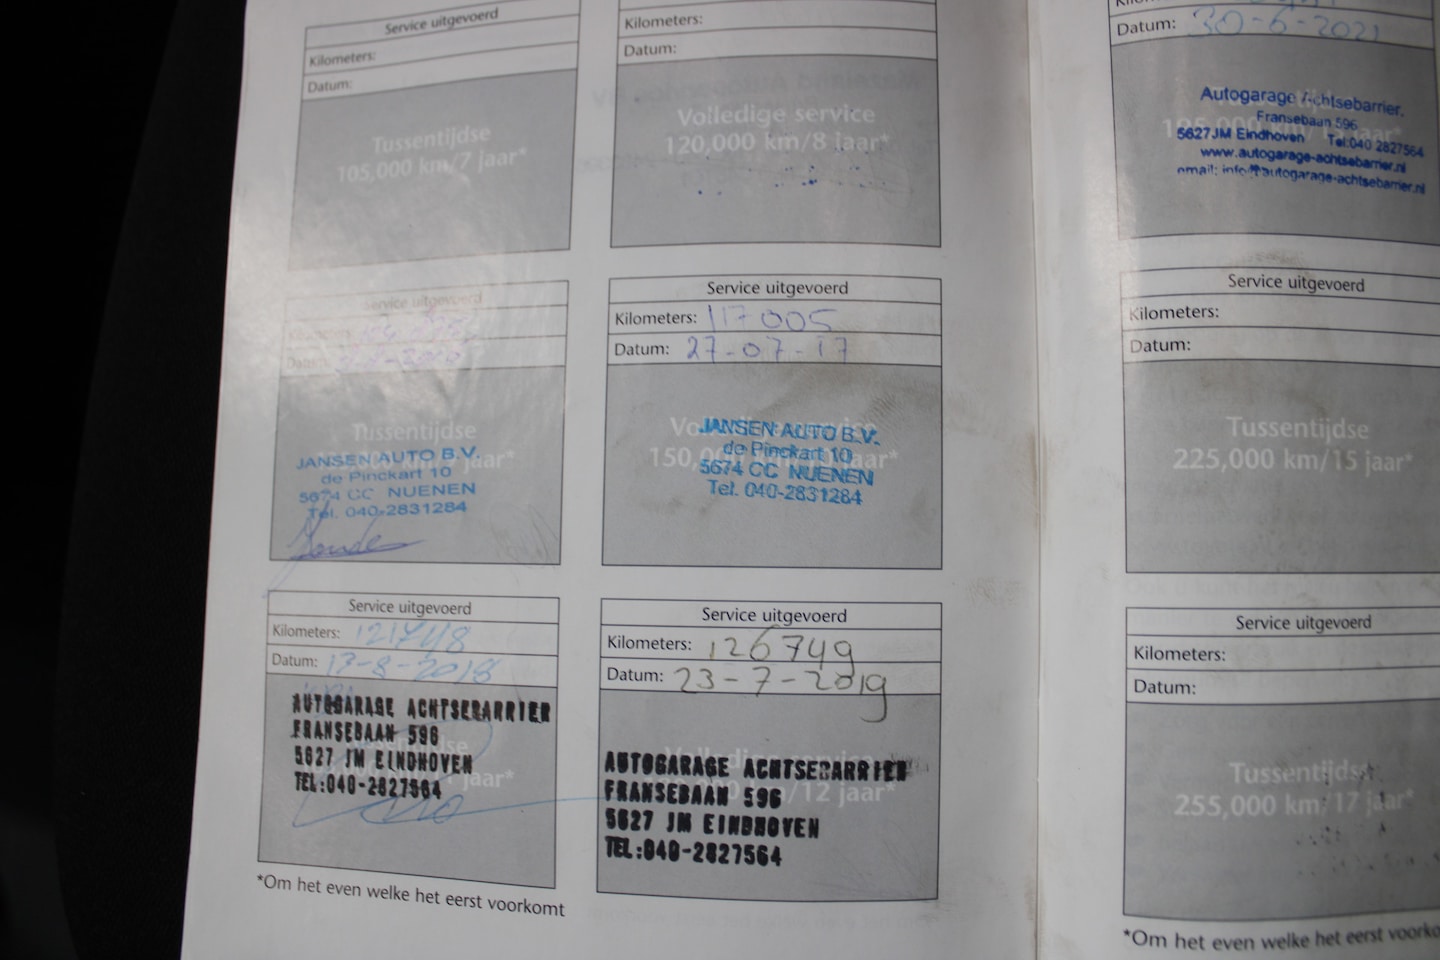 Service uitgevoerd
Kilometers:
Datum:
Tussentijdse
105,000 km/7 jaar*
Kilometers:
Datum:
Volledige service
120,000 km/8 jaar*
Service uitgevoerd
Tussentijdse
jaar*
JANSEN AUTO B.V.
de Pinckart 10
5674 CC NUENEN
Tel. 040-2831284
Service uitgevoerd
Kilometers: 117005
Datum: 27-07-17
150,000
JANSEN AUTO B.V.
de Pinckart 10
5674 CC NUENEN
Tel. 040-2831284
Service uitgevoerd
Kilometers: 121748
Datum: 17-8-2018
jaar*
AUTOGARAGE ACHTSEBARRIER
FRANSEBAAN 596
5627 JM EINDHOVEN
TEL:040-2827564
Service uitgevoerd
Kilometers: 126749
Datum: 23-7-2019
km/12 jaar*
AUTOGARAGE ACHTSEBARRIER
FRANSEBAAN 596
5627 JM EINDHOVEN
TEL:040-2827564
*Om het even welke het eerst voorkomt
Datum: 30-6-2021
Autogarage Achtsebarrier.
Fransebaan 596
5627JM Eindhoven Tel:040 2827564
www.autogarage-achtsebarrier.nl
email: info@autogarage-achtsebarrier.nl
Service uitgevoerd
Kilometers:
Datum:
Tussentijdse
225,000 km/15 jaar*
Service uitgevoerd
Kilometers:
Datum:
Tussentijdse
255,000 km/17 jaar*
*Om het even welke het eerst